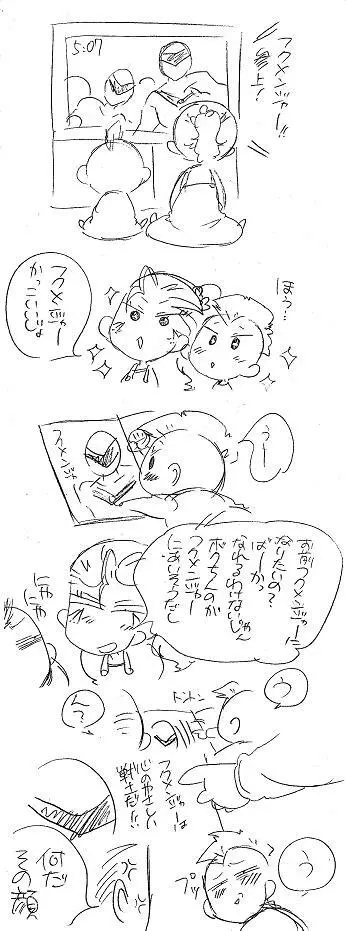 5:07
フクメンジャー!!
参上!
ほう…
フクメンジャー
かっこいいじょ
う〜
フクメンジャー
お前フクメンジャーに
なりたいの?
ばーかっ
なれるわけないじゃん
ボクちんのが
フクメンジャー
にあいそうだし
にやにや
う
トントン
ん?
フクメンジャーは
心のやさしい
戦士だ!!
う
プッ
何だ
その顔